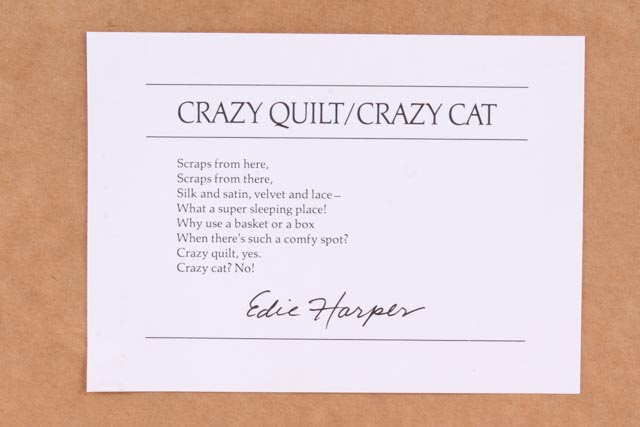 CRAZY QUILT/CRAZY CAT
Scraps from here,
Scraps from there,
Silk and satin, velvet and lace –
What a super sleeping place!
Why use a basket or a box
When there's such a comfy spot?
Crazy quilt, yes.
Crazy cat? No!
Edie Harper